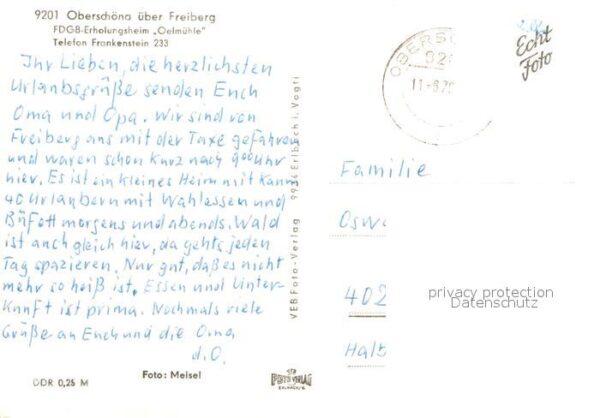 9201 Oberschöna über Freiberg
FDGB-Erholungsheim „Oelmühle"
Telefon Frankenstein 233
Ihr Lieben, die herzlichsten
Urlaubsgrüße senden Euch
Oma und Opa. Wir sind von
Freiberg aus mit der Taxe gefahren
und waren schon kurz nach 900 Uhr
hier. Es ist ein kleines Heim mit kaum
40 Urlaubern mit Wahlessen und
Büfett morgens und abends. Wald
ist auch gleich hier, da gehts jeden
Tag spazieren. Nur gut, daß es nicht
mehr so heiß ist. Essen und Unter-
kunft ist prima. Nochmals viele
Grüße an Euch und die Oma
d. O.
DDR 0,25 M
Foto: Meisel
VEB Foto-Verlag 9934 Erlbach i. Vogtl
FOTO VERLAG
ERLBACH
OBERS
92
11-8.
Echt
Foto
Familie
Osw
402
Halb
privacy protection
Datenschutz